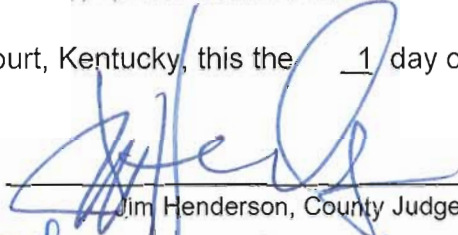 ourt, Kentucky, this the 1 day o
Jim Henderson, County Judge